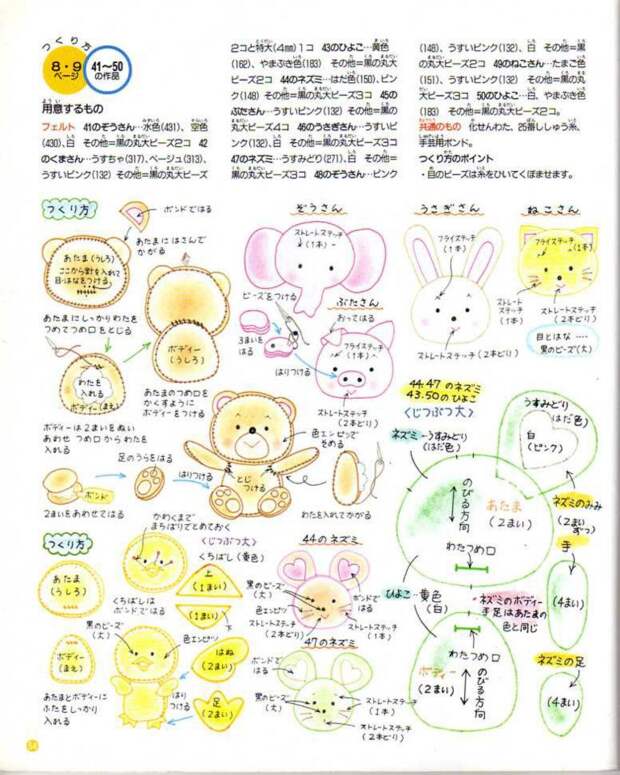 つくり方
8・9
ページ
41〜50
の作品
用意するもの
フェルト 41のぞうさん…水色(431)、空色
(430)、白 その他=黒の丸大ビーズ2コ 42
のくまさん…うすちゃ(317)、ベージュ(313)、
うすいピンク(132) その他=黒の丸大ビーズ
2コと特大(4㎜)1コ 43のひよこ…黄色
(162)、やまぶき色(183) その他=黒の丸大
ビーズ2コ 44のネズミ…はだ色(150)、ピン
ク(148) その他=黒の丸大ビーズ3コ 45の
ぶたさん…うすいピンク(132) その他=黒の
丸大ビーズ4コ 46のうさぎさん…うすいピ
ンク(132) その他=黒の丸大ビーズ3コ
47のネズミ…うすみどり(271)、その他=
黒の丸大ビーズ3コ 48のぞうさん…ピンク
(148)、うすいピンク(132)、白 その他=黒
の丸大ビーズ2コ 49のねこさん…たまご色
(151)、うすいピンク(132) その他=黒の丸
大ビーズ3コ 50のひよこ…白、やまぶき色
(183) その他=黒の丸大ビーズ2コ
共通のもの 化せんわた、25番ししゅう糸、
手芸用ボンド。
つくり方のポイント
・目のビーズは糸をひいてくぼませます。
つくり方
ボンドではる
あたまにはさんで
かがる
あたま(うしろ)
ここから針を入れて
目・はなをつける。
あたまにしっかりわたを
つめてつめ口をとじる
ボディー
(うしろ)
わたを
入れる
ボディー(まえ)
あたまのつめ口を
かくすように
ボディーをつける
ボディーは2まいをぬい
あわせ つめ口からわたを
入れる
足のうらをはる
ボンド
はりつける
2まいをあわせてはる
かわくまで
まちばりでとめておく
とじ
つける
色エンピツで
そめる
わたを入れてかがる
ぞうさん
ストレートステッチ
(1本)
ビーズをつける
ぶたさん
おってはる
3まいを
はる
はりつける
フライステッチ
(1本)
ストレートステッチ
(2本どり)
うさぎさん
フライステッチ
(1本)
ストレート
ステッチ
(1本)
ストレートステッチ(2本どり)
ねこさん
フライステッチ
(1本)
ストレート
ステッチ
(1本)
ストレートステッチ
(2本どり)
目とはな……
黒のビーズ(大)
44.47のネズミ
43.50のひよこ
<じつぶつ大>
ネズミ…うすみどり
(はだ色)
うすみどり
(はだ色)
白
(ピンク)
のびる方向
あたま
(2まい)
わたつめ口
ネズミのみみ
(2まい
ずつ)
手
(4まい)
ひよこ…黄色
(白)
ネズミのボディー
手足はあたまの
色と同じ
わたつめ口
ボディー
(2まい)
のびる方向
ネズミの足
(4まい)
つくり方
あたま
(うしろ)
くちばしは
ボンドではる
<じつぶつ大>
くちばし(黄色)
上
(1まい)
(1まい)
黒のビーズ
(大)
色エンピツ
ボディー
(まえ)
はね
(2まい)
はり
つける
足
(2まい)
あたまとボディーに
ふたをしっかり
入れる
44のネズミ
黒のビーズ
(大)
ボンドで
はる
色エンピツ
ストレートステッチ
(2本どり)
ストレートステッチ
(1本)
47のネズミ
ボンドで
はる
黒のビーズ
(大)
ストレートステッチ
(1本)
ストレートステッチ
(2本どり)
54